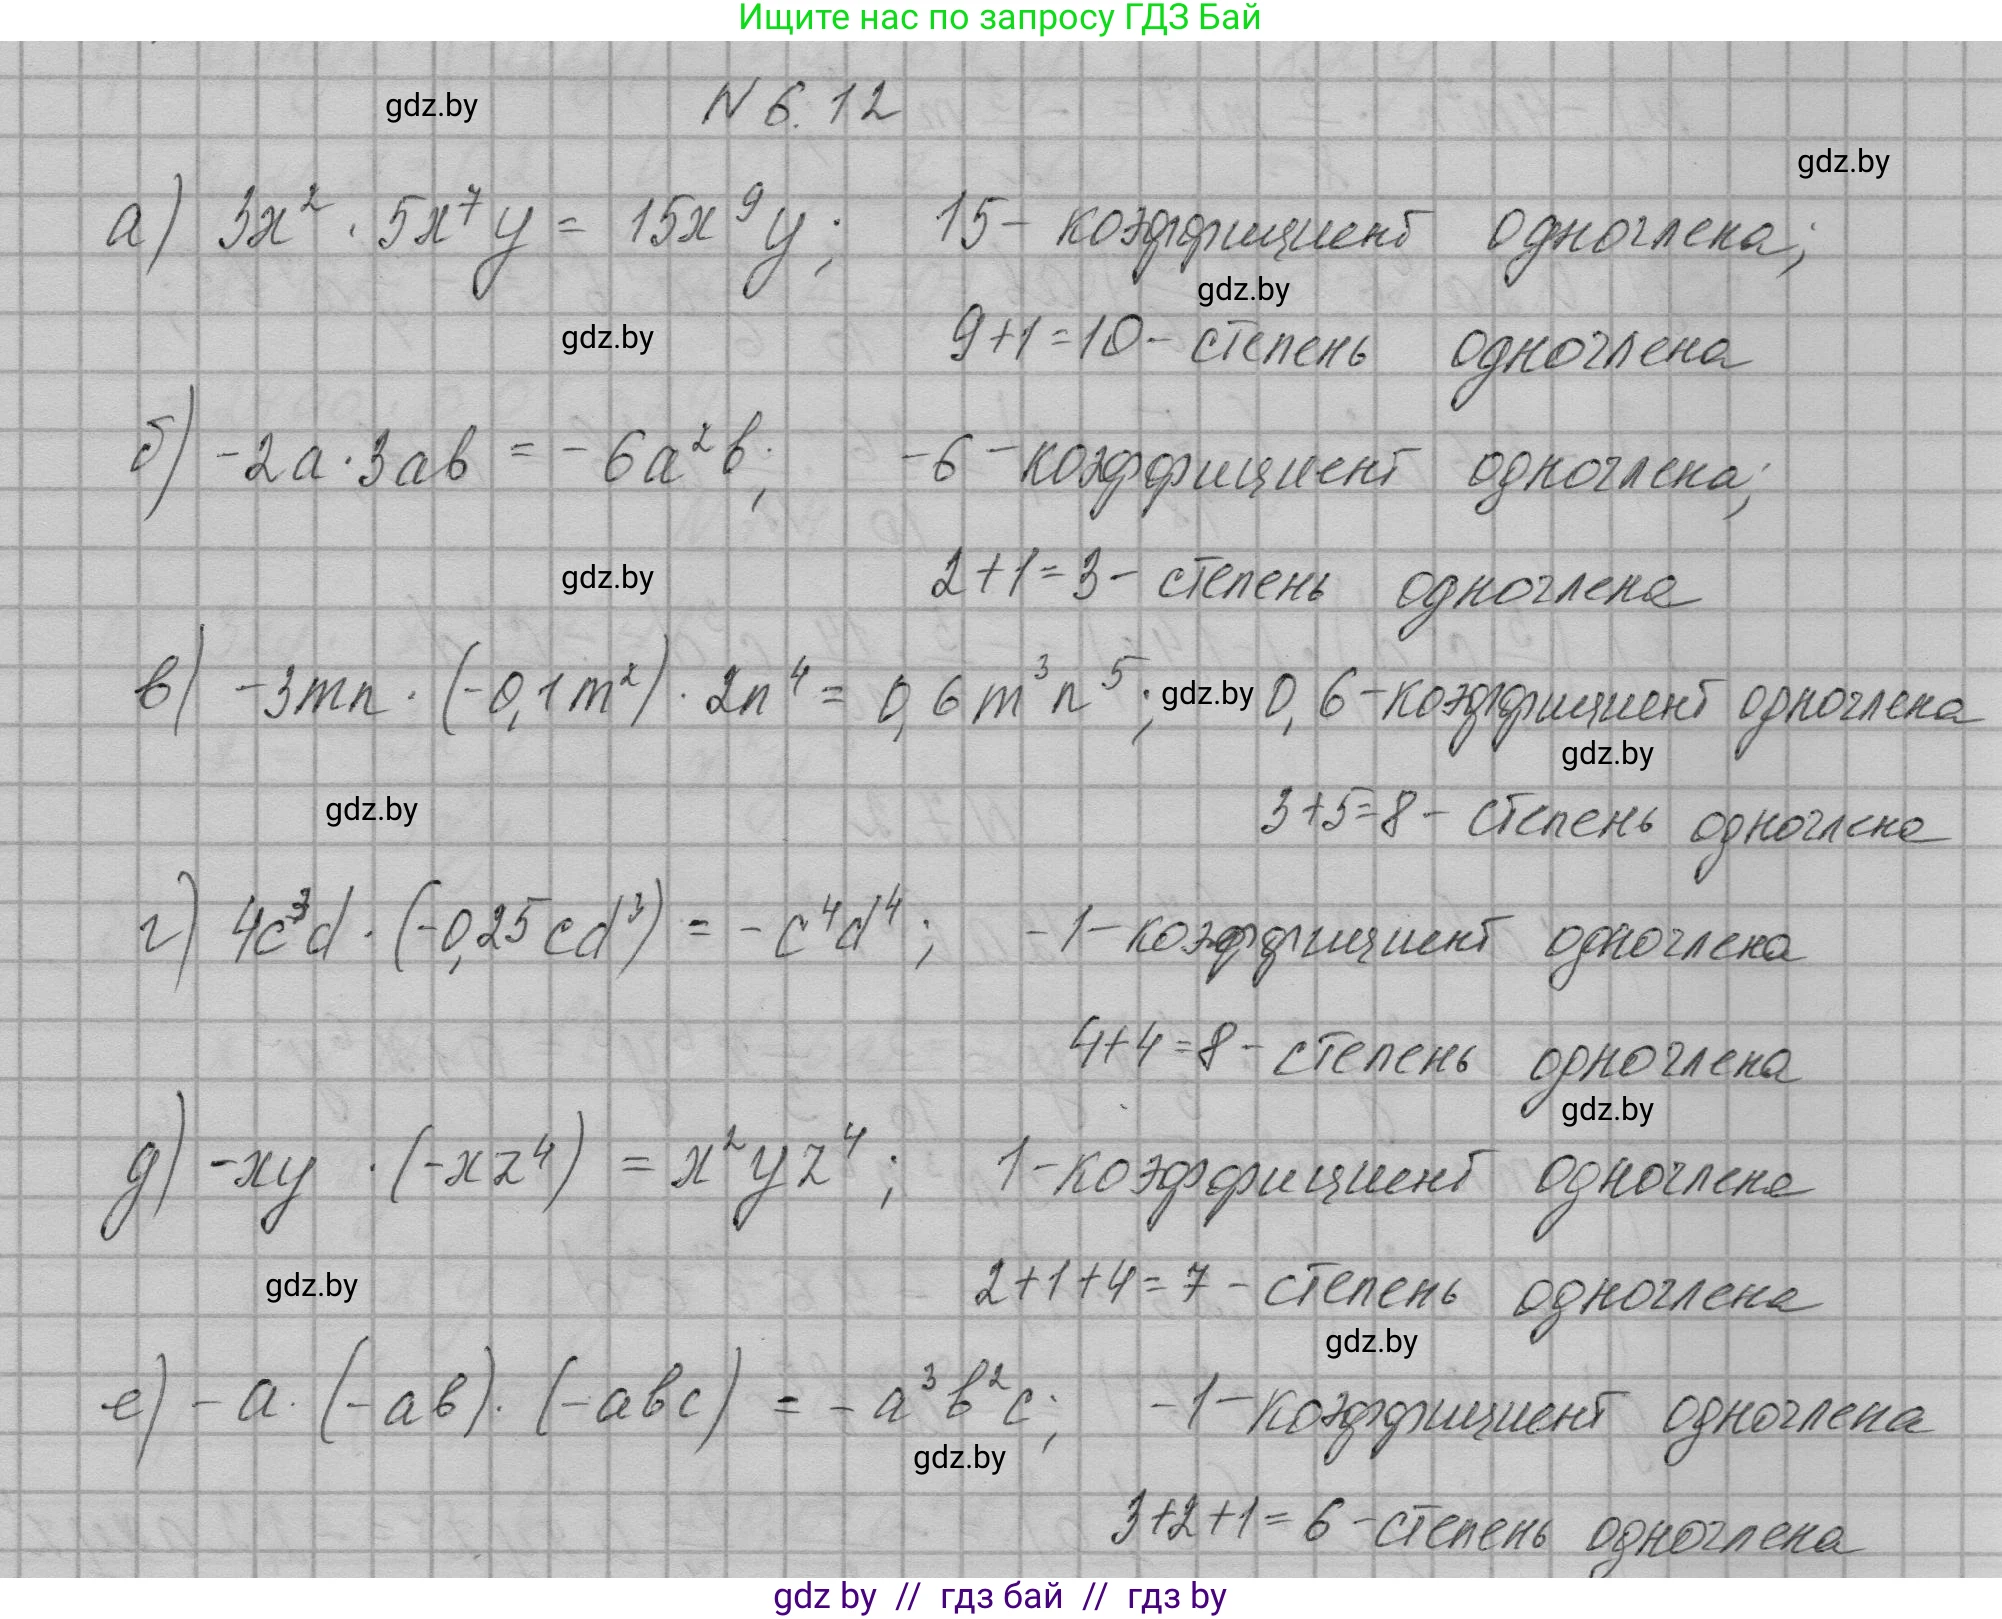 Ищите нас по запросу ГДЗ Бай
N 6.12
gdz.by
gdz.by
а) 3x² · 5x⁷y = 15x⁹y; 15 - коэффициент одночлена;
gdz.by
gdz.by
9+1=10 - степень одночлена
б) -2a · 3ab = -6a²b; -6 - коэффициент одночлена;
gdz.by
2+1=3 - степень одночлена
в) -3mn · (-0,1m²) · 2n⁴ = 0,6m³n⁵; gdz.by 0,6 - коэффициент одночлена
gdz.by
gdz.by
3+5=8 - степень одночлена
г) 4c³d · (-0,25cd³) = -c⁴d⁴; -1 - коэффициент одночлена
4+4=8 - степень одночлена
gdz.by
д) -xy · (-xz⁴) = x²yz⁴; 1 - коэффициент одночлена
gdz.by
2+1+4=7 - степень одночлена
gdz.by
е) -a · (-ab) · (-abc) = -a³b²c; -1 - коэффициент одночлена
gdz.by
3+2+1=6 - степень одночлена
gdz by // гдз бай // гдз by